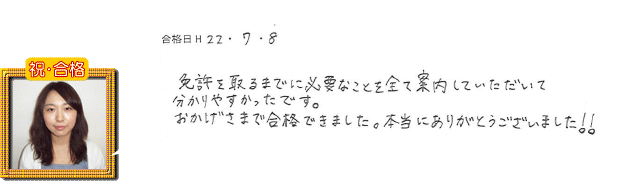 合格日 H 22・7・8
祝・合格
免許を取るまでに必要なことを全て案内していただいて
分かりやすかったです。
おかげさまで合格できました。本当にありがとうございました!!